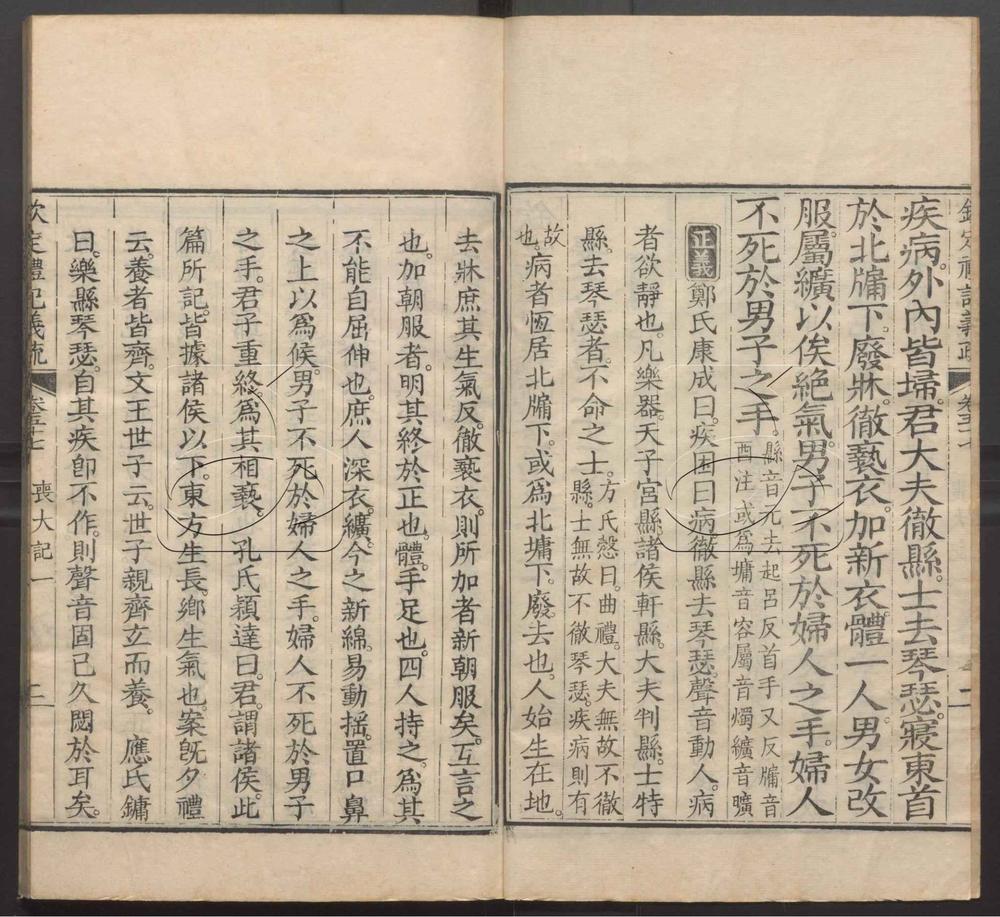 欽定禮記義疏 卷五十七 二
疾病。外內皆埽。君大夫徹縣。士去琴瑟。寢東首
於北牖下。廢牀。徹褻衣。加新衣。體一人。男女改
服。屬纊以俟絕氣。男子不死於婦人之手。婦人
不死於男子之手。
縣音元去起呂反首手又反牖音
酉注或爲墉音容屬音燭纊音曠
正義 鄭氏康成曰。疾困曰病。徹縣去琴瑟。聲音動人。病
者欲靜也。凡樂器。天子宮縣。諸侯軒縣。大夫判縣。士特
縣。去琴瑟者。不命之士。
方氏愨曰。曲禮。大夫無故不徹
縣。士無故不徹琴瑟。疾病則有
故也。病者恆居北牖下。或爲北墉下。廢。去也。人始生在地。
去牀庶其生氣反。徹褻衣。則所加者新朝服矣。互言之
也。加朝服者。明其終於正也。體。手足也。四人持之。爲其
不能自屈伸也。庶人深衣。纊。今之新綿。易動搖。置口鼻
之上以爲候。男子不死於婦人之手。婦人不死於男子
之手。君子重終。爲其相褻。 孔氏穎達曰。君。謂諸侯。此
篇所記。皆據諸侯以下。東方生長。鄉生氣也。案旣夕禮
云。養者皆齊。文王世子云。世子親齊立而養。 應氏鏞
曰。樂縣琴瑟。自其疾卽不作。則聲音固已久閟於耳矣。
欽定禮記義疏 卷五十七 喪大記一 二